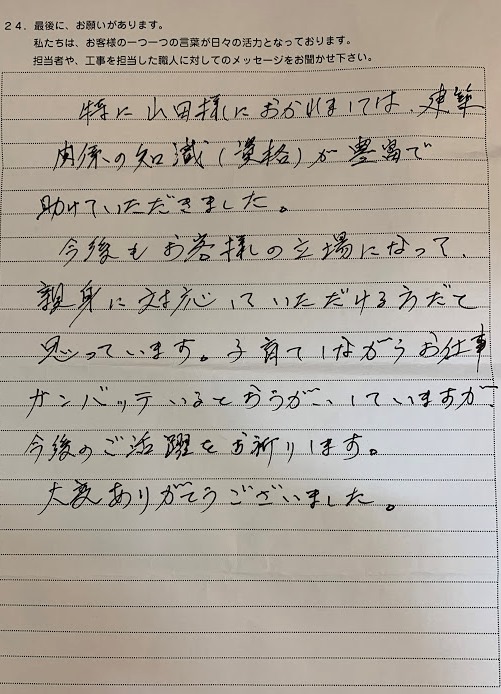 24．最後に、お願いがあります。
私たちは、お客様の一つ一つの言葉が日々の活力となっております。
担当者や、工事を担当した職人に対してのメッセージをお聞かせ下さい。
特に山田様におかれましては、建築
関係の知識(資格)が豊富で
助けていただきました。
今後もお客様の立場になって、
親身に対応していただける方だと
思っています。子育てしながらお仕事
ガンバッテいるとおうかがいしていますが
今後のご活躍をお祈りします。
大変ありがとうございました。